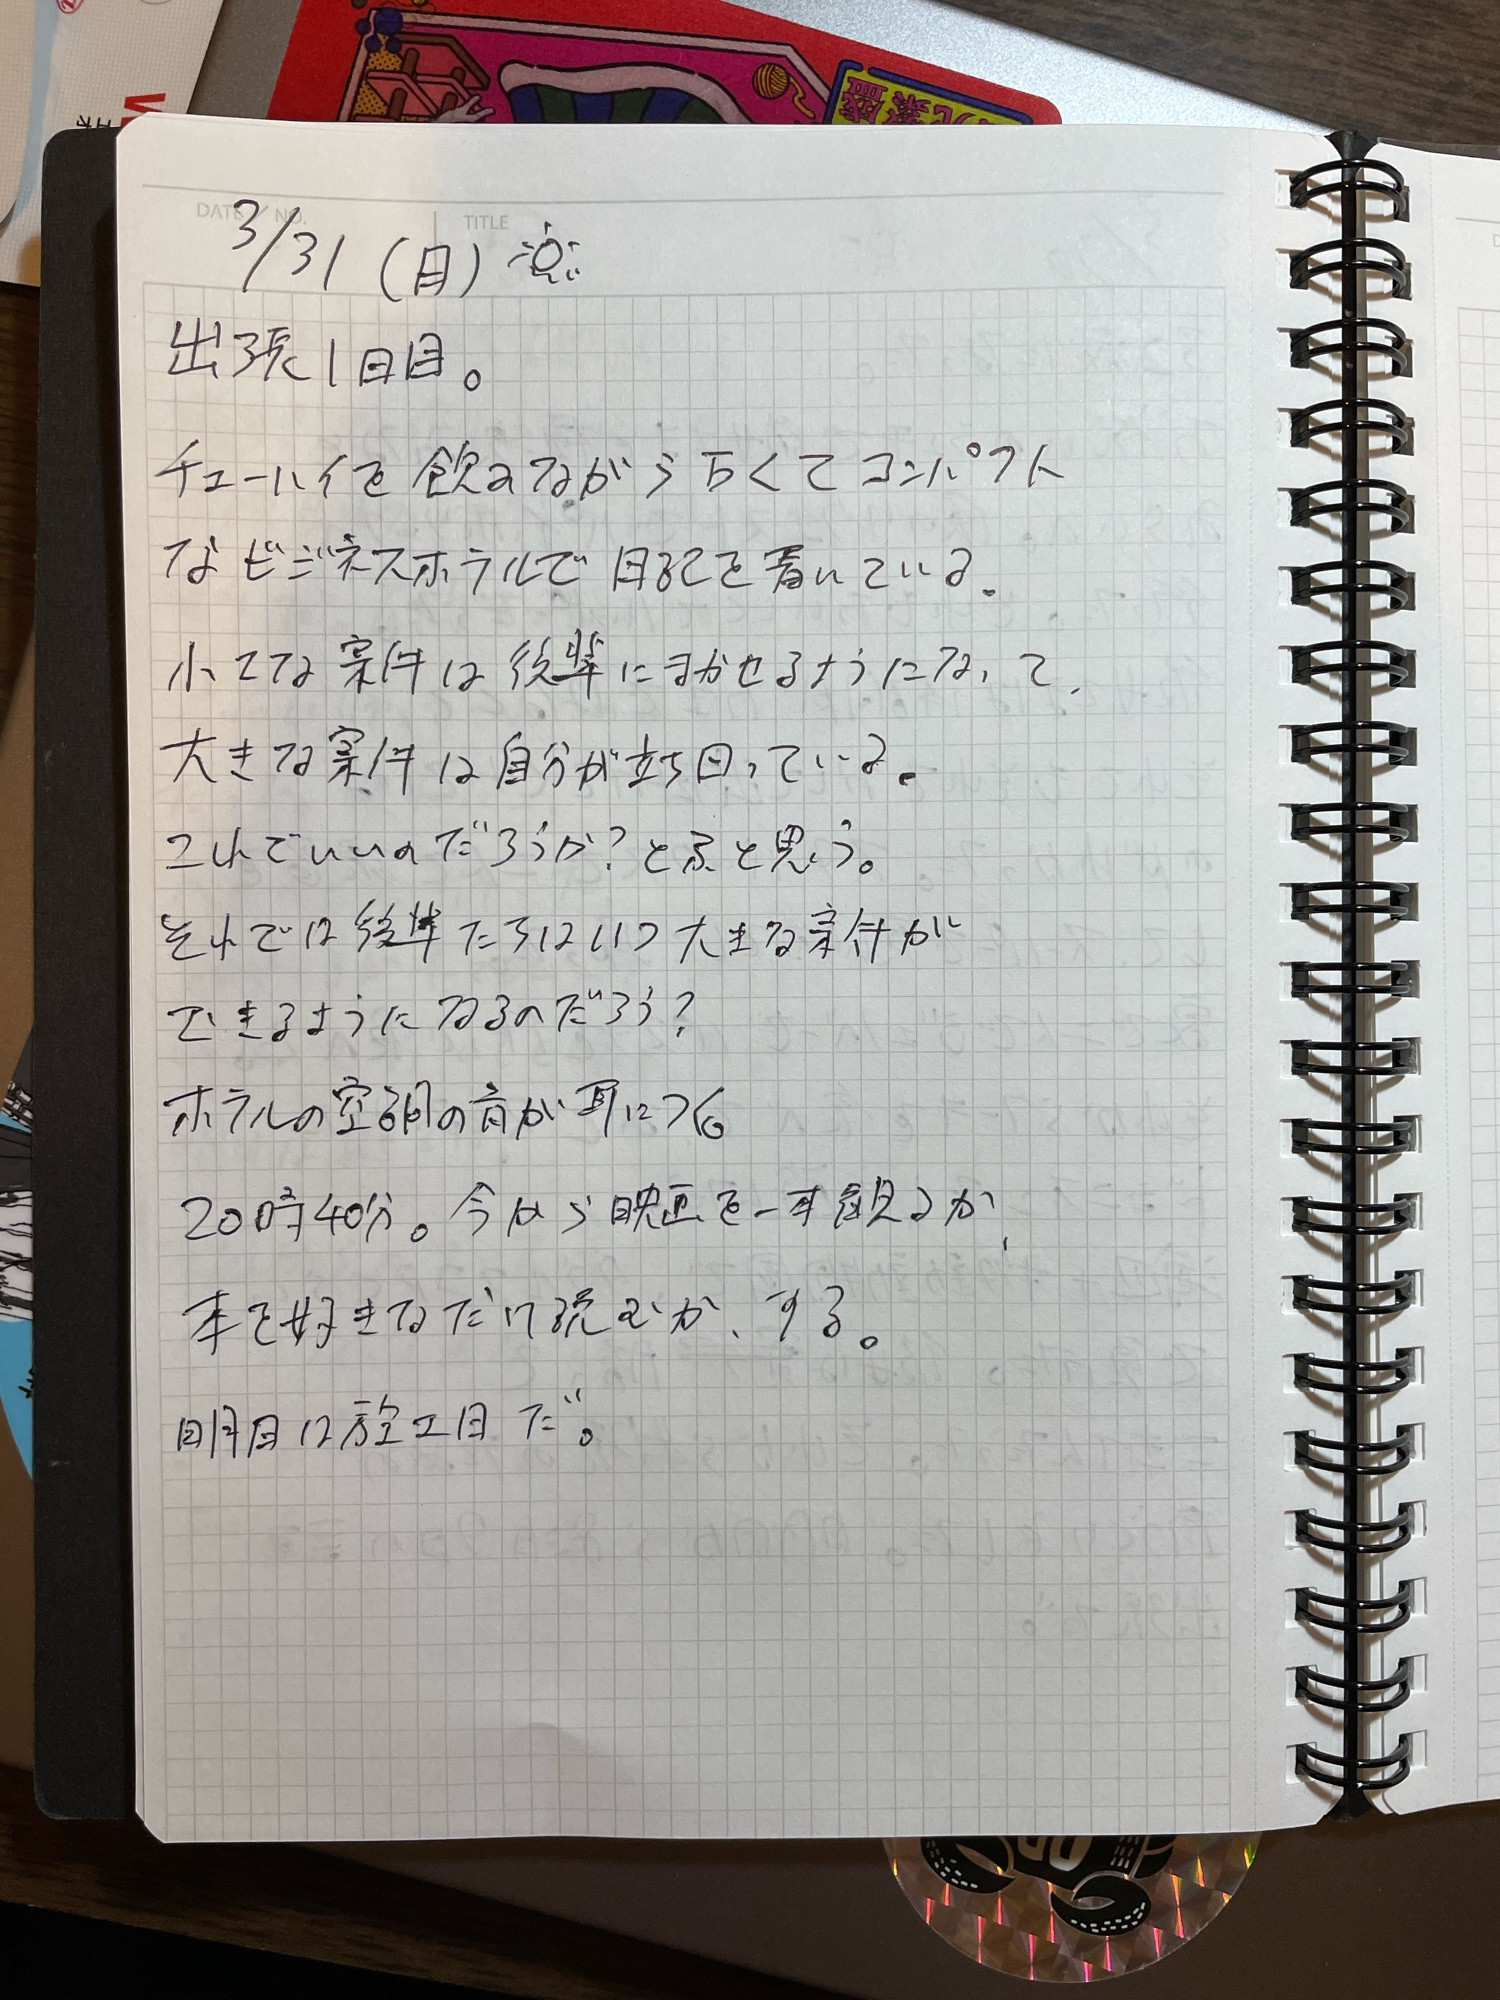 DATE / NO.
TITLE
3/31 (日)
出張1日目。
チューハイを飲みながら古くてコンパクト
なビジネスホテルで日記を書いている。
小さな案件は後輩にまかせるようになって、
大きな案件は自分が立ち回っている。
これでいいのだろうか?とふと思う。
それでは後輩たちはいつ大きな案件が
できるようになるのだろう?
ホテルの空調の音が耳につく。
20時40分。今から映画を一本観るか、
本を好きなだけ読むか、する。
明日は施工日だ。